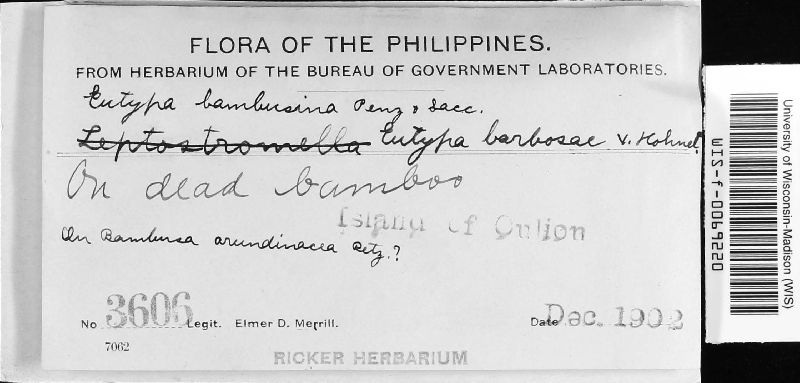 FLORA OF THE PHILIPPINES.
FROM HERBARIUM OF THE BUREAU OF GOVERNMENT LABORATORIES.
Eutypa bambusina Penz & Sacc.
Leptostromella Eutypa barbosae v. Hohnel
On dead bamboo
Island of Culion
On Bambusa arundinacea Retz.?
No 3606 Legit. Elmer D. Merrill. Date Dec. 1902
7062
RICKER HERBARIUM
WIS-f-0069220
University of Wisconsin-Madison (WIS)